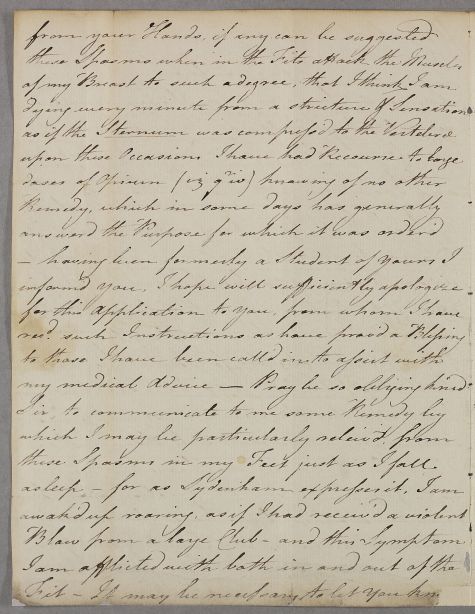 from your Hands, if any can be suggested
these Spasms when in the Fits attack the Muscles
of my Breast to such a degree, that I think I am
dying every minute from a stricture & Sensation
as if the Sternum was compressed to the Vertebrae
upon these Occasions I have had Recourse to large
doses of Opium (viz gr io) knowing of no other
Remedy, which in some days has generally
answerd the Purpose for which it was orderd
– having been formerly a Student of yours I
inform'd you, I hope will sufficiently apologize
for this Application to you, from whom I have
recd. such Instructions as have prov'd a Blessing
to those I have been call'd in to assist with
my medical Advice — Pray be so obliging kind
Sir, to communicate to me some Remedy by
which I may be particularly reliev'd from
these Spasms in my Feet just as I fall
asleep – for as Sydenham expresses it, I am
awak'd up roaring, as if I had receiv'd a violent
Blow from a large Club – and this Symptom
I am afflicted with both in and out of the
Fit – It may be necessary to let you know